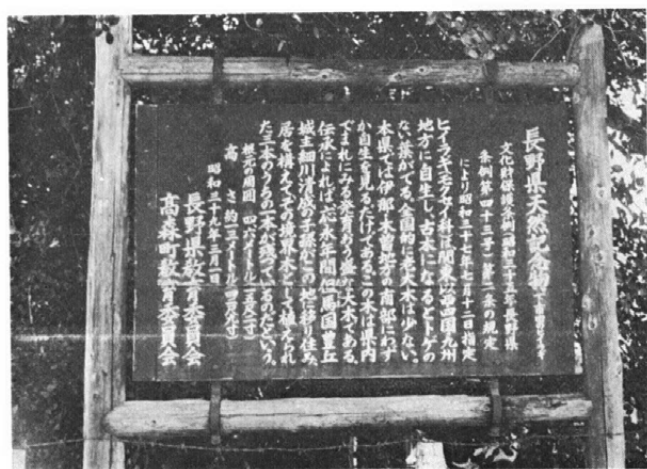 長野県天然記念物 下市田のヒイラギ
文化財保護条例(昭和三十五年長野県
条例第四十三号)第二条の規定
により昭和三十七年七月十二日指定
ヒイラギ(モクセイ科)は関東以西四国九州
地方に自生し、古木になるとトゲの
ない葉がでる。全国的に老大木は少ない。
本県では伊那・木曽地方の南部にわず
か自生を見るだけである。この木は県内
でまれにみる発育のよい盛んな大木である。
伝承によれば、応永年間但馬国豊丘
城主細川清盛の子孫がこの地に移り住み、
居を構えてその境界木として植えられ
た三本のうちの一本が残っているのだという。
根元の周囲 四・六メートル(一五尺二寸)
高さ 約一二メートル(四〇尺)
昭和三十九年三月一日
長野県教育委員会
高森町教育委員会